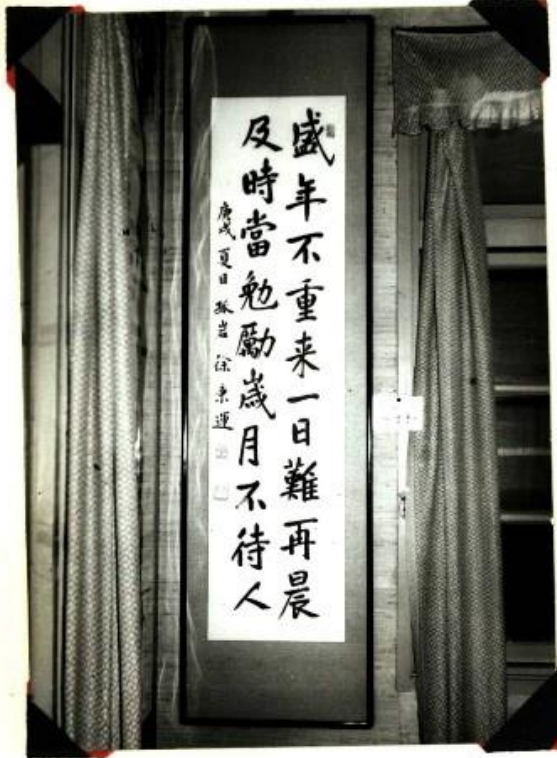 盛年不重来一日難再晨
及時當勉勵歲月不待人
庚戌夏日 孤岩 徐東運